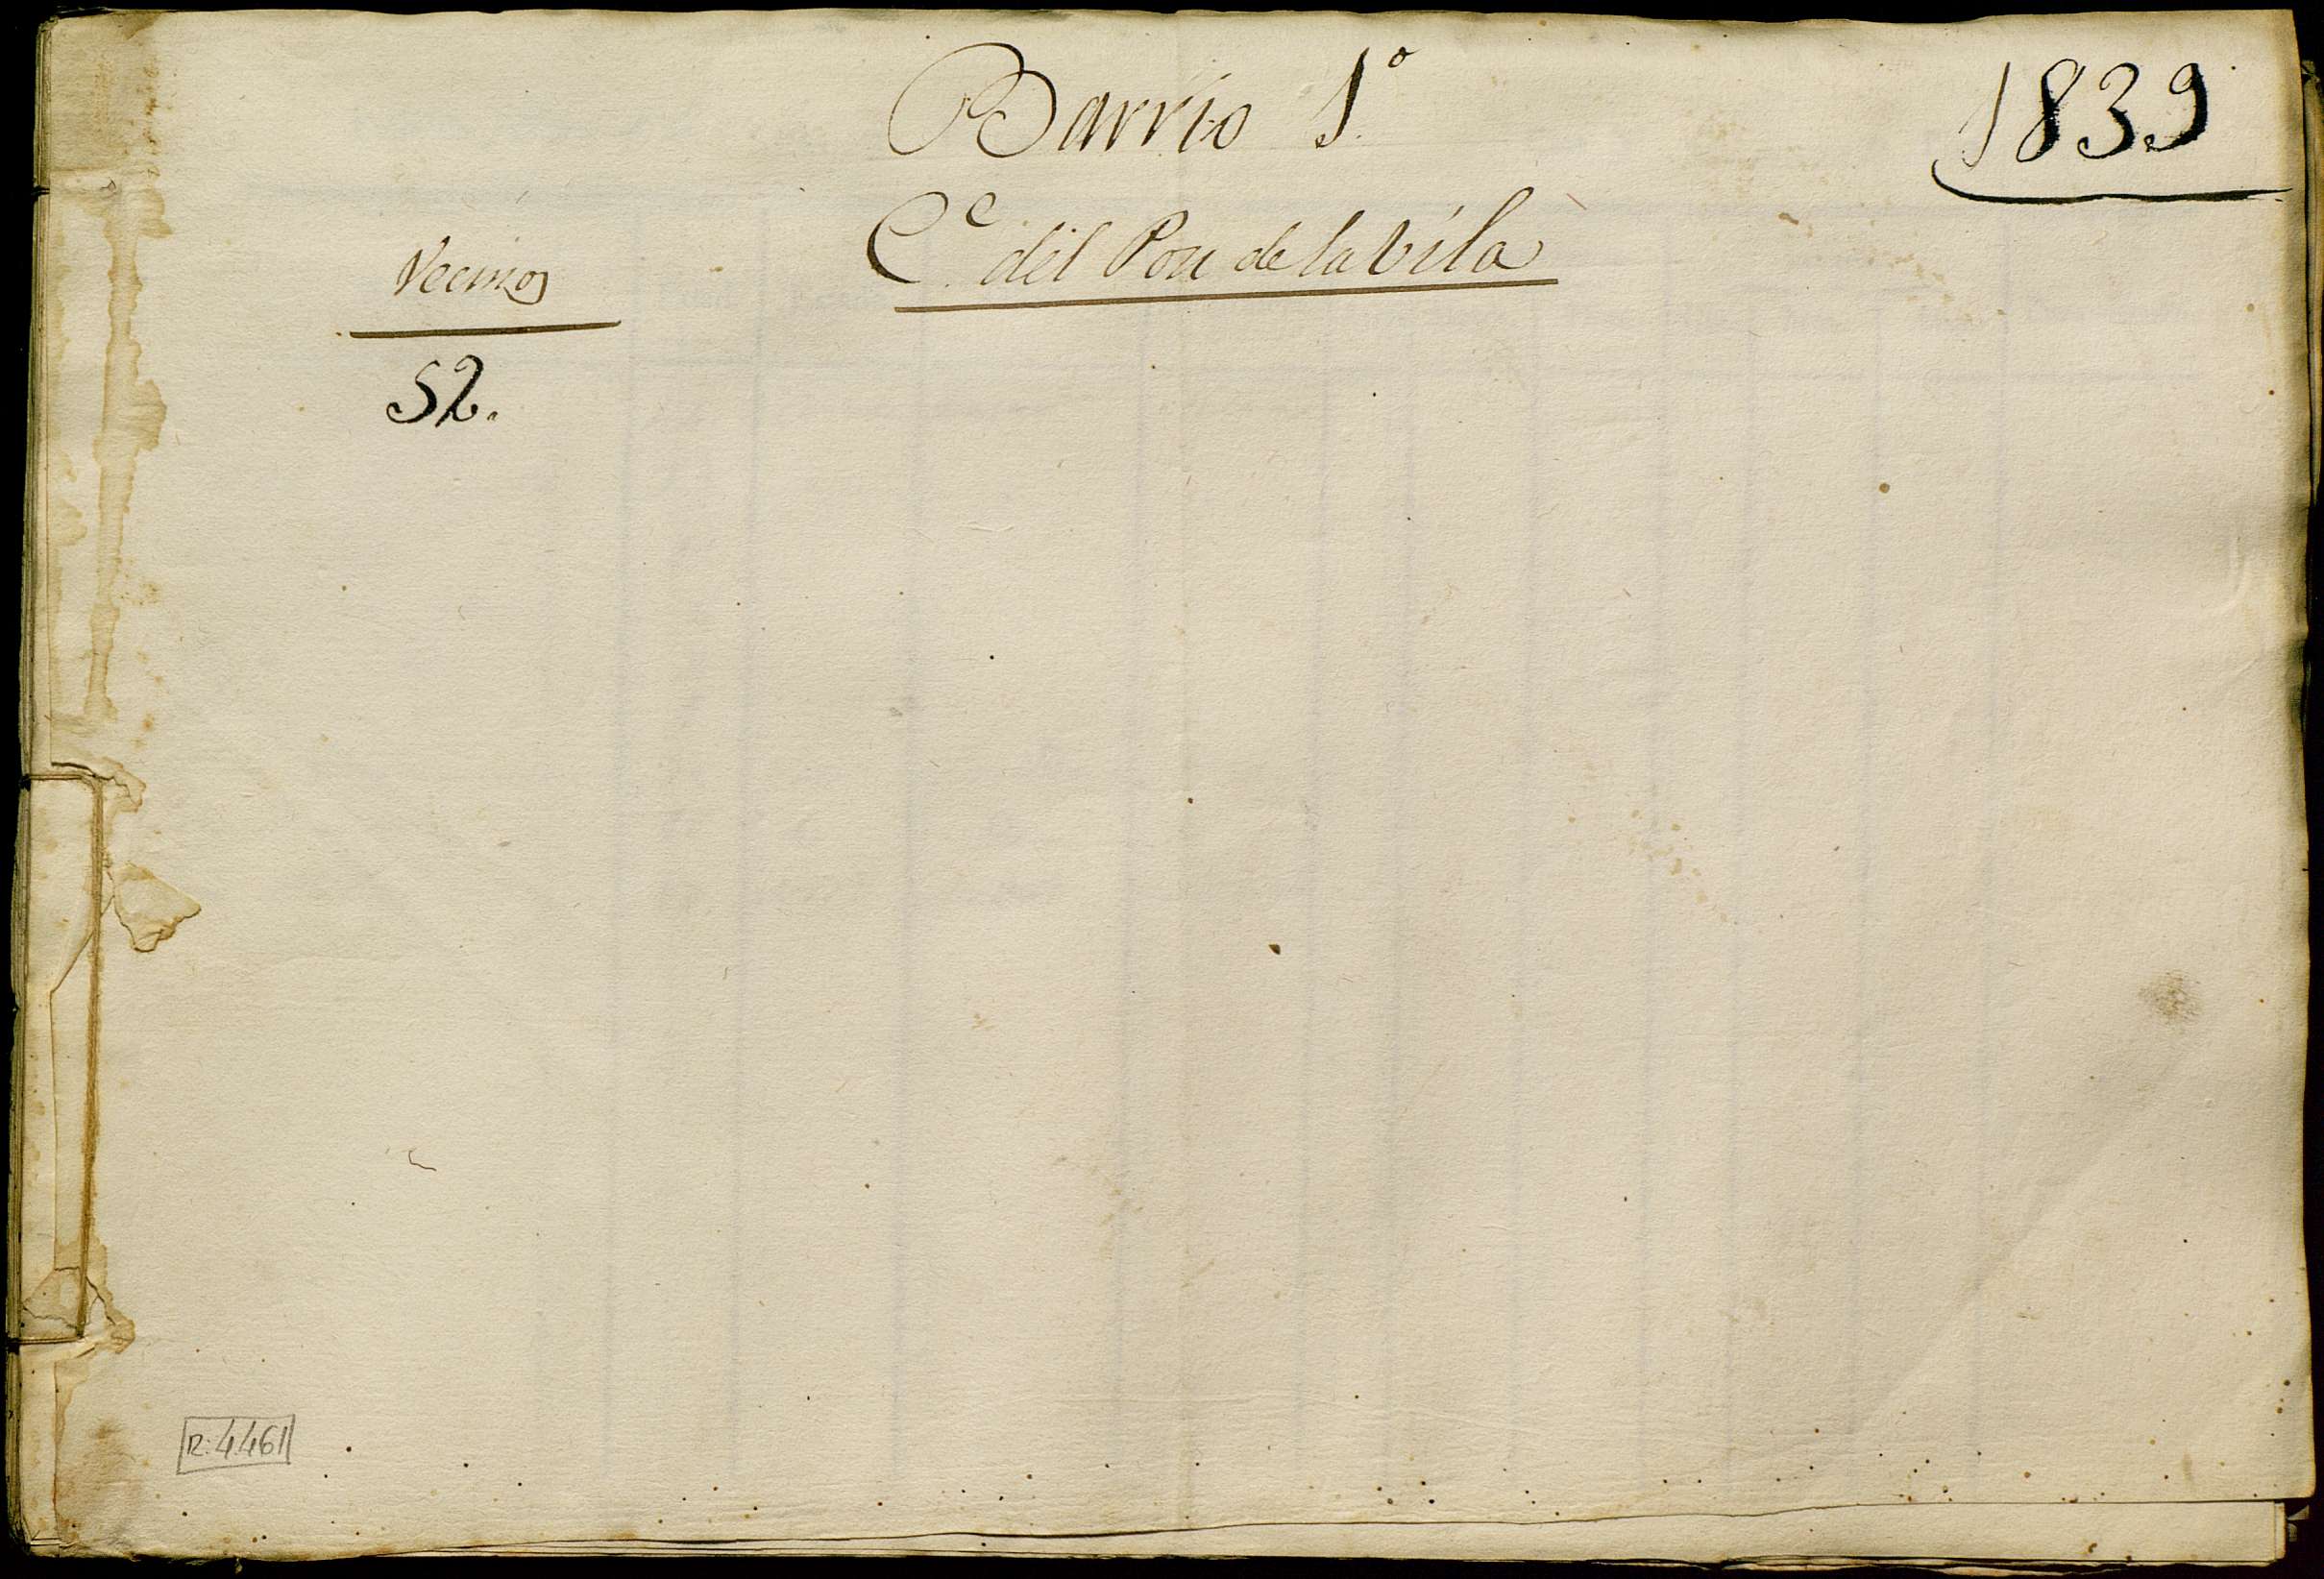 Barrio 1º
1839
Cᵉ del Pou de la Vila
Vecinos
52.
R: 4461